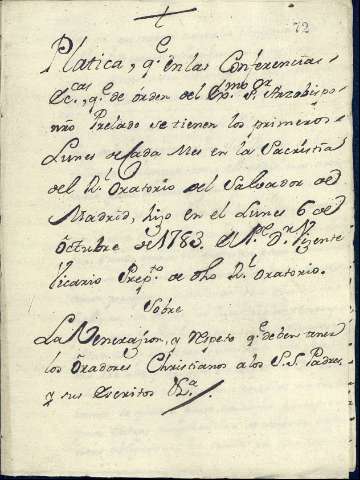 72
Platica, q.e en las Conferencias
Ecc.cas, q.e de órden del Ex.mo S.or Arzobispo
nr̃o Prelado se tienen los primeros
Lunes de Cada Mes en la Sacristia
del R.l Oratorio del Salvador de
Madrid, hizo en el Lunes 6 de
Octubre de 1783. el P.e D.n Vizente
Vicario Prep.to de dho R.l Oratorio.
Sobre
La Venerazion, y Respeto q.e deben tener
los Oradores Christianos a los S.S. Padres,
y sus Escritos &.a